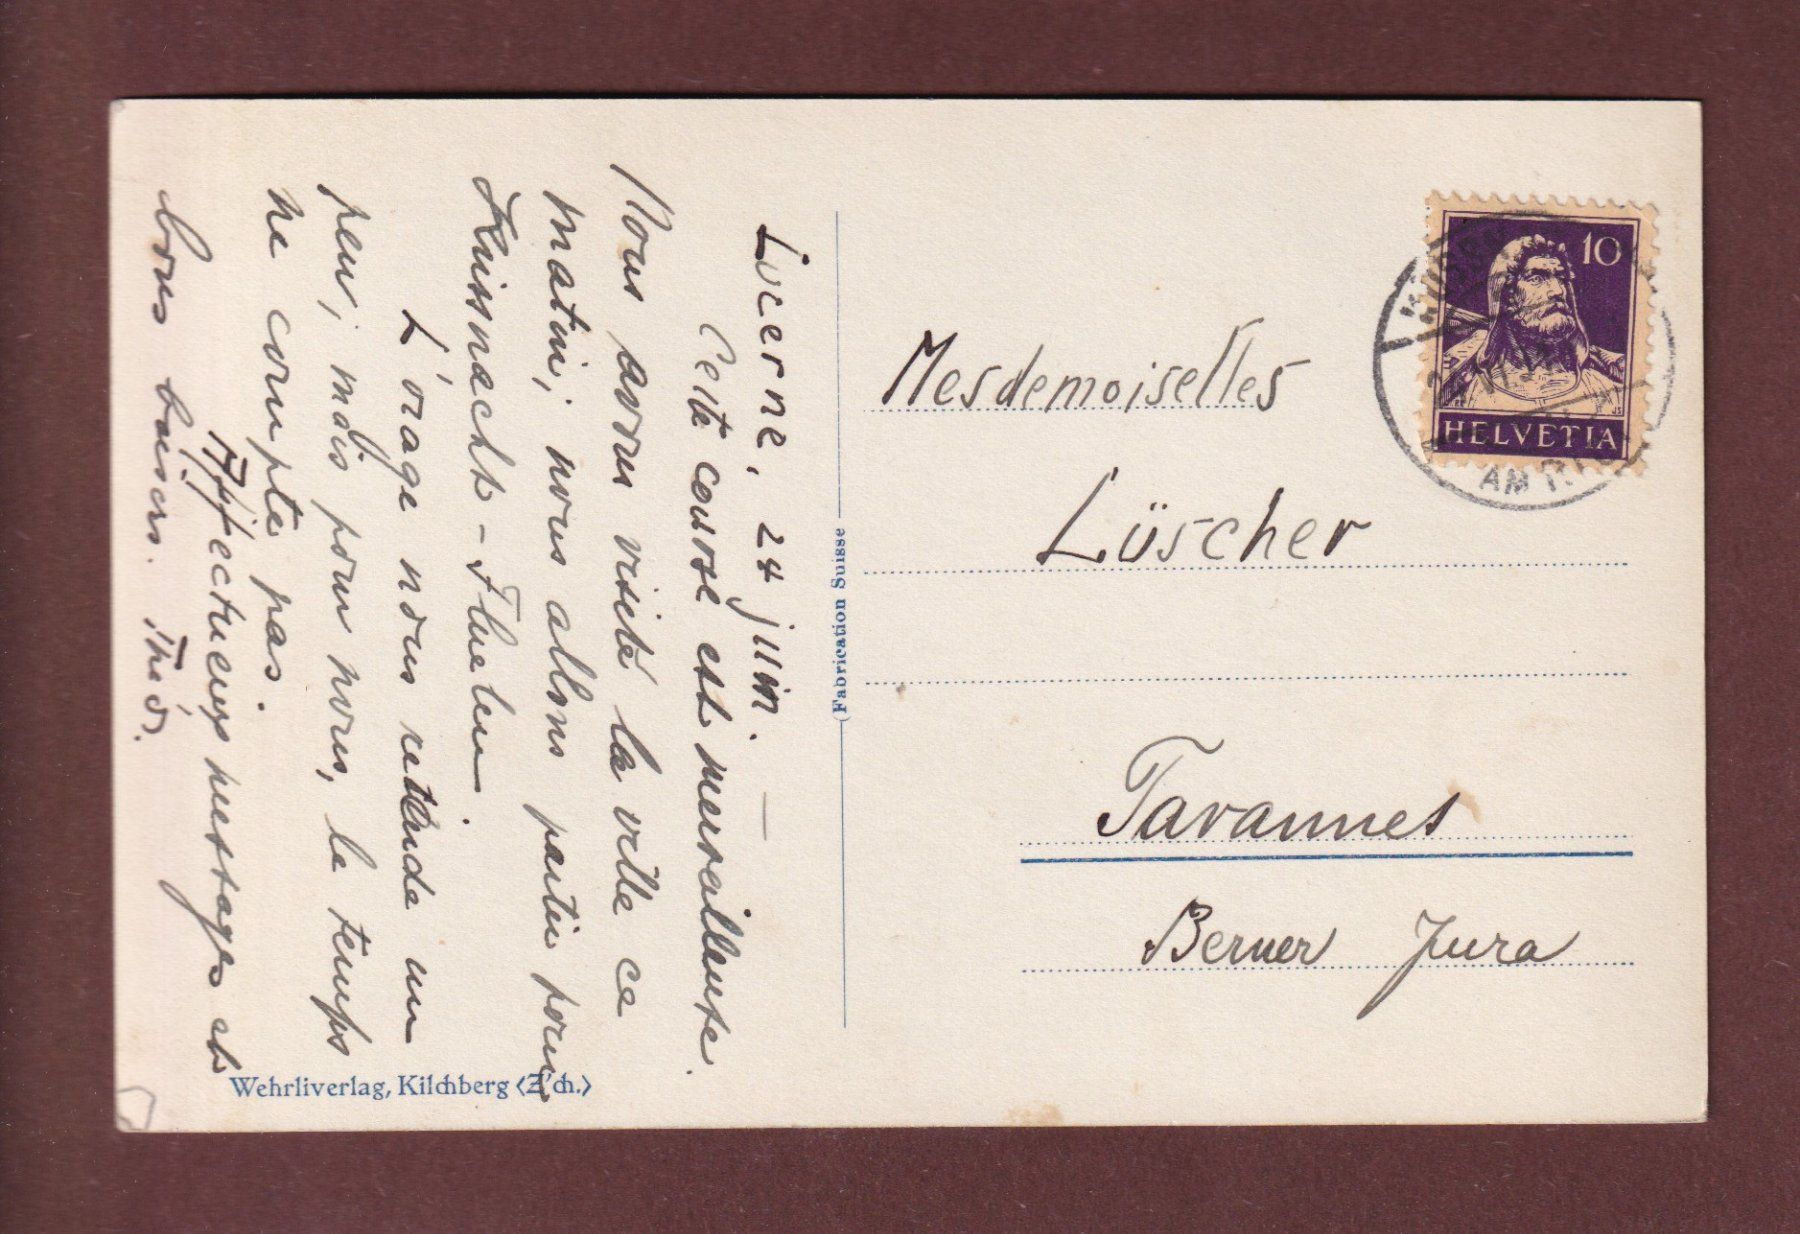 Lucerne, 24 juin.
Cette course est merveilleuse.
Nous avons visité la ville ce
matin, nous allons partir pour
Küssnacht - Fluelen.
L'orage nous retarde un
peu, mais pour nous, le temps
ne compte pas.
Affectueux messages et
bons baisers. Théo.
(Fabrication Suisse
Wehrliverlag, Kilchberg (Z'ch.)
10
HELVETIA
AM RIGI
Mesdemoiselles
Lüscher
Tavannes
Berner Jura